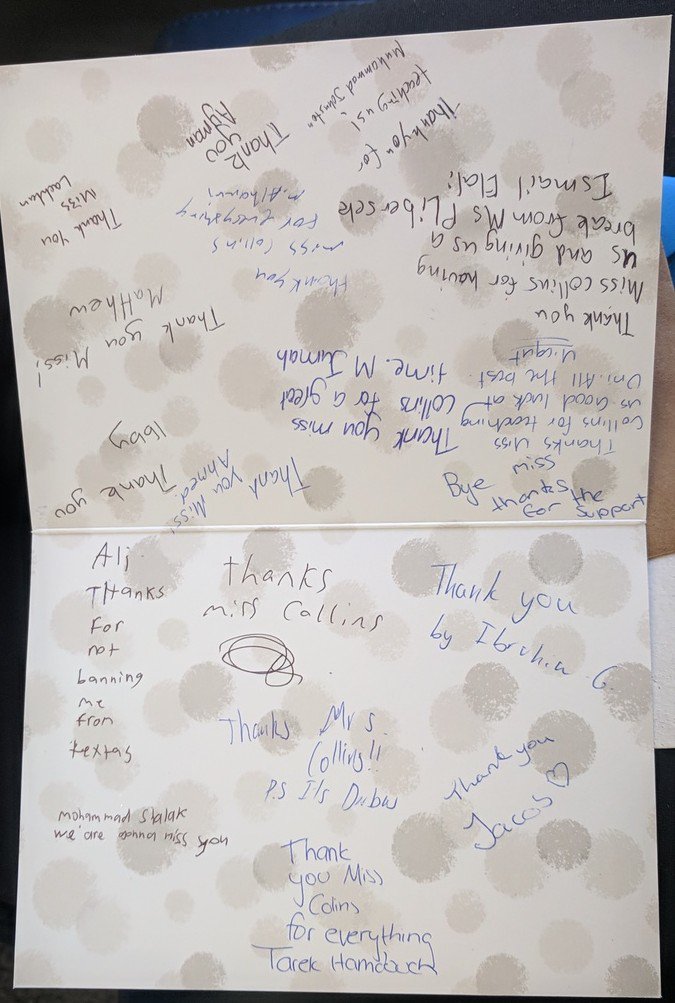 Thank you for
teaching us!
Muhammad
Thank
you
Ayman
Thank you
Miss
Lachlan
Thank you
miss Collins
For everything
Thank you
Miss Collins for having
us and giving us a
break from Ms Plibersek
Ismail Elali
Thank you Miss!
Matthew
Thank you miss
Collins for a great
time. M Jumah
Thanks Miss
Collins for teaching
us Good luck at
Uni. All the best.
Thank you
Ibby
Thank
you Miss!
Ahmed
Bye miss
thanks
for the
support
Ali
THanks
For
not
banning
me
from
textas
thanks
miss Collins
Thank you
by Ibrahim G.
Thanks Mrs.
Collins!!
P.S It's
Thank you
Jacob ♡
mohammad
we are gonna miss you
Thank
you Miss
Colins
for everything
Tarek